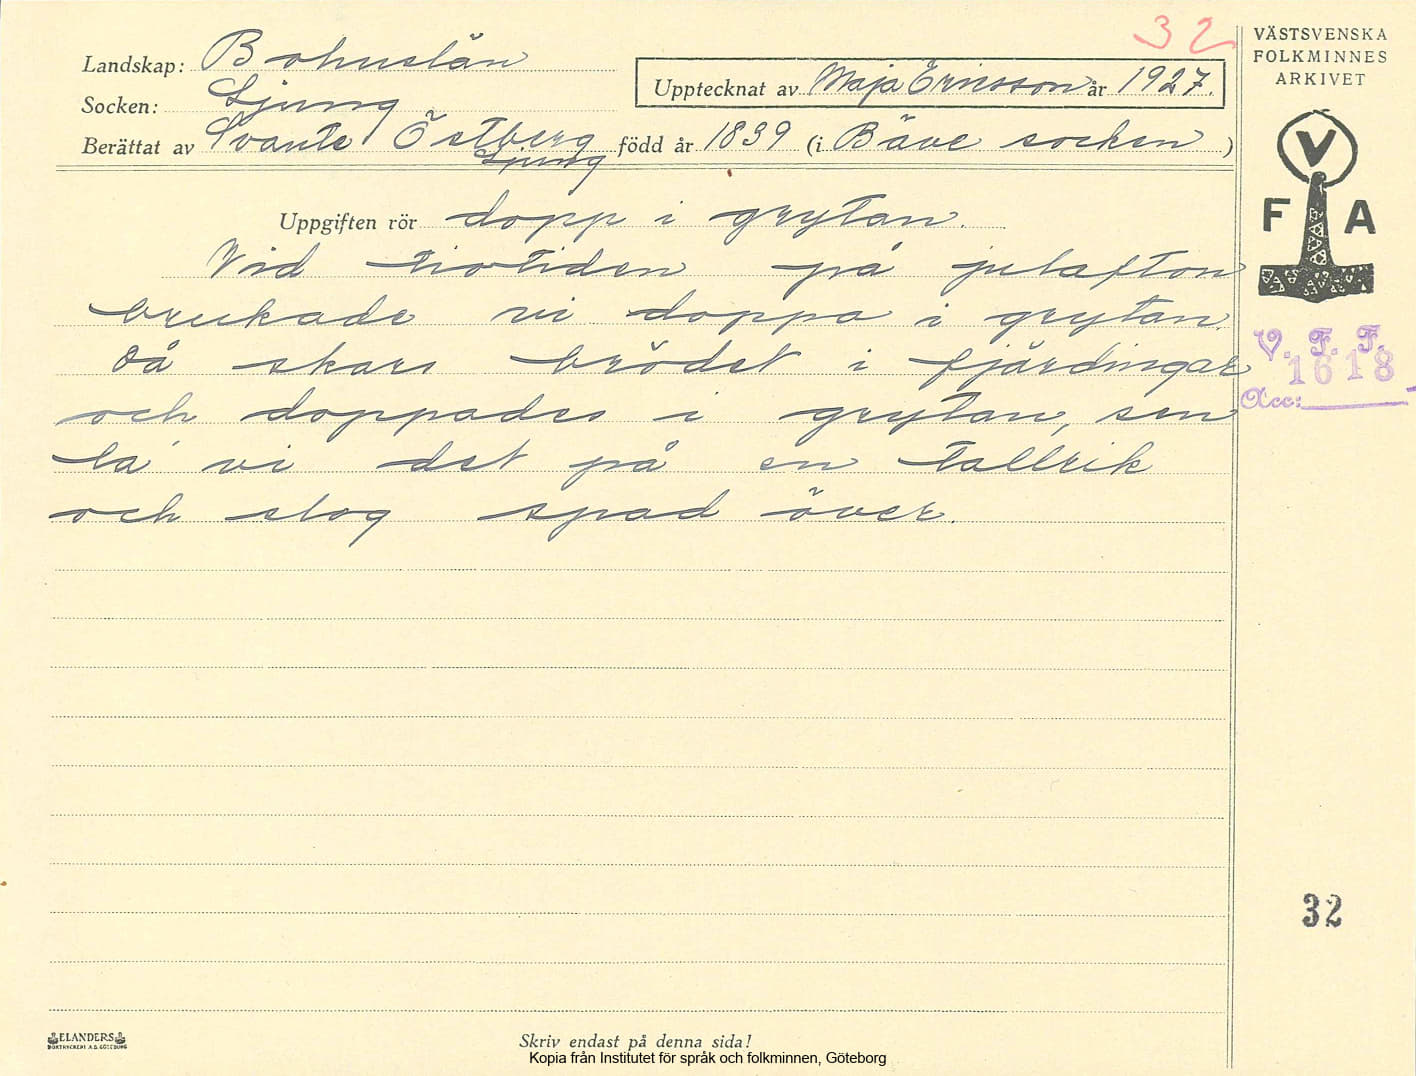 32
VÄSTSVENSKA
FOLKMINNES
ARKIVET
Landskap: Bohuslän
Upptecknat av Maja Ericsson år 1927.
Socken: Ljung
Berättat av Svante Östberg född år 1839 (i Bäve socken)
Ljung
V
F A
Uppgiften rör dopp i grytan.
Vid tiotiden på julafton
brukade vi doppa i grytan.
Då skars brödet i fjärdingar
och doppades i grytan, sen
la vi det på en tallrik
och slog spad över.
V. F. F.
1618
Acc:
32
ELANDERS
BOKTRYCKERI A.B. GÖTEBORG
Skriv endast på denna sida!
Kopia från Institutet för språk och folkminnen, Göteborg